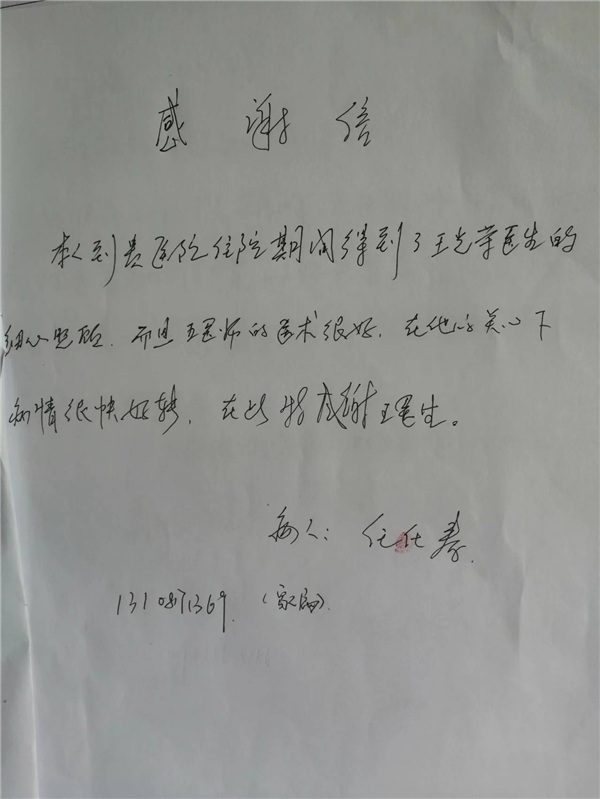 感谢信
本人到贵医院住院期间得到了王光荣医生的
细心照顾．而且王医师的医术很好．在他的关心下
病情很快好转．在此特感谢王医生。
病人：任仕寿
（家属）